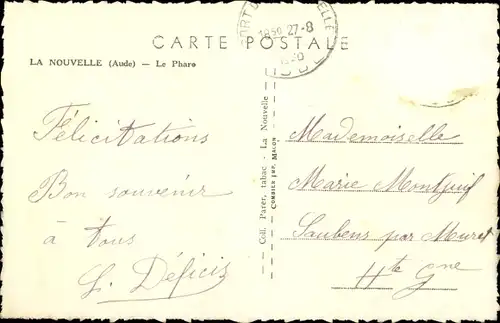 CARTE POSTALE
LA NOUVELLE (Aude) — Le Phare
18 50 27-8
Félicitations
Bon souvenir
à tous
L. Déficis
Coll. Parer, tabac - La Nouvelle
COMBIER IMP. MACON
Mademoiselle
Marie Montjuif
Saubens par Muret
Hte Gne